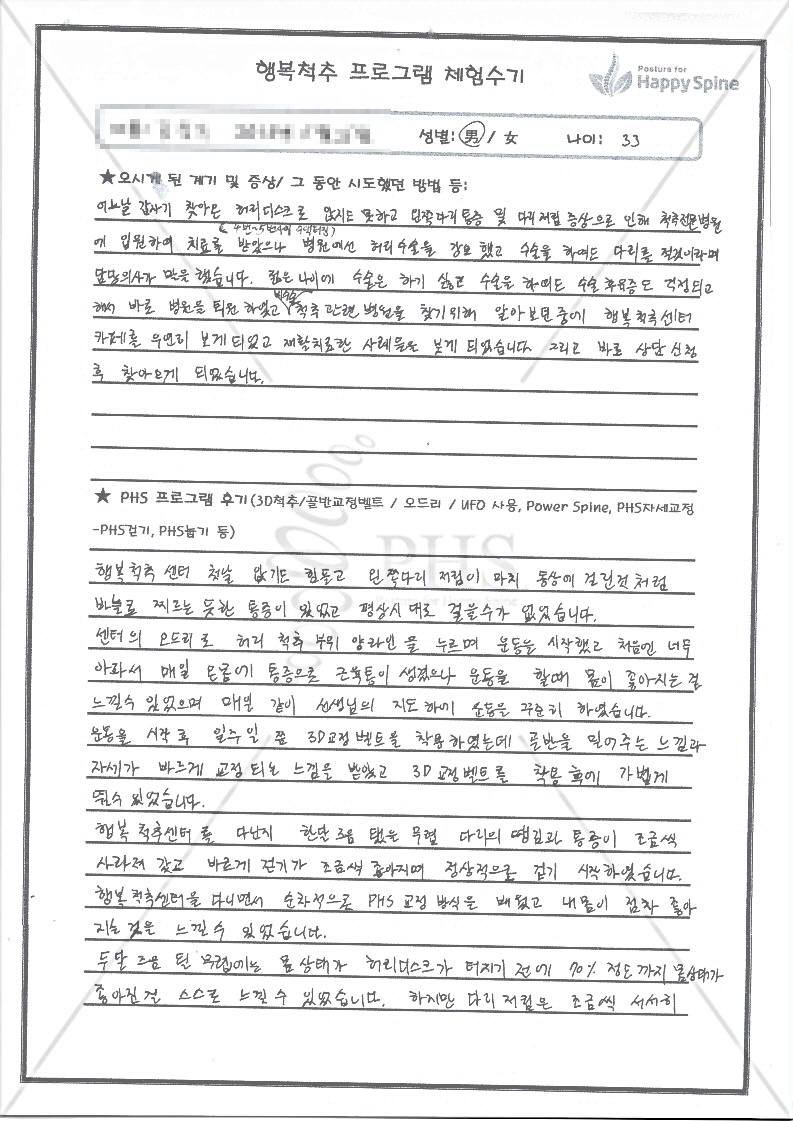 행복척추 프로그램 체험수기
Posture for
Happy Spine
성별: 男 / 女 나이: 33
★오시게 된 계기 및 증상/ 그 동안 시도했던 방법 등:
어느날 갑자기 찾아온 허리디스크로 앉지도 못하고 왼쪽다리통증 및 다리저림 증상으로 인해 척추전문병원
(4번~5번사이
에 입원하여 치료를 받았으나 병원에선 허리수술을 강요했고 수술을 하여도 다리를 절것이라며
담당의사가 말을 했습니다. 젊은 나이에 수술은 하기 싫고 수술을 하여도 수술 후유증도 걱정되고
비수술
해서 바로 병원을 퇴원하였고 척추관련 병원을 찾기위해 알아보던 중에 행복척추센터
카페를 우연히 보게되었고 재활치료한 사례들을 보게 되었습니다. 그리고 바로 상담 신청
후 찾아오게 되었습니다.
★ PHS 프로그램 후기(3D척추/골반교정벨트 / 오드리 / UFO 사용, Power Spine, PHS자세교정
-PHS걷기, PHS눕기 등)
PHS
행복척추 센터 첫날 앉기도 힘들고 왼쪽다리 저림이 마치 동상에 걸린것 처럼
바늘로 찌르는 듯한 통증이 있었고 평상시 대로 걸을수가 없었습니다.
센터의 오드리로 허리 척추 부위 양라인을 누르며 운동을 시작했고 처음엔 너무
아파서 매일 온몸에 통증으로 근육통이 생겼으나 운동을 할때 몸이 좋아지는걸
느낄수 있었으며 매일 같이 선생님의 지도하에 운동을 꾸준히 하였습니다.
운동을 시작 후 일주일 쯤 3D교정벨트를 착용하였는데 골반을 밀어주는 느낌과
자세가 바르게 교정되는 느낌을 받았고 3D교정벨트를 착용 후에 가볍게
뛸수 있었습니다.
행복척추센터를 다닌지 한달 즈음 됐을 무렵 다리의 땡김과 통증이 조금씩
사라져 갔고 바르게 걷기가 조금씩 좋아지며 정상적으로 걷기 시작하였습니다.
행복척추센터를 다니면서 순차적으로 PHS 교정 방식을 배웠고 내몸이 점차 좋아
지는 것을 느낄수 있었습니다.
두달 즈음 된 무렵에는 몸상태가 허리디스크가 터지기 전에 70% 정도까지 몸상태가
좋아진걸 스스로 느낄 수 있었습니다. 하지만 다리저림은 조금씩 서서히